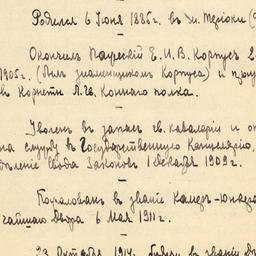 Родился 6 Iюня 1885г. въ м. Теріоки (
Окончилъ Пажескій Е. И. В. Корпусъ 2
1905г. (былъ знаменщикомъ Корпуса) и
въ Корнеты Л. Гв. Коннаго полка.
Уволенъ въ запасъ гв. кавалеріи и оп
на службу въ Государственную Канцелярію,
дѣленіе Свода Законовъ 1 Декабря 1909г.
Пожалованъ въ званіе Камеръ-Юнкера
чайшаго Двора 6 Мая 1911г.
23 Октября 1914 въ званіи